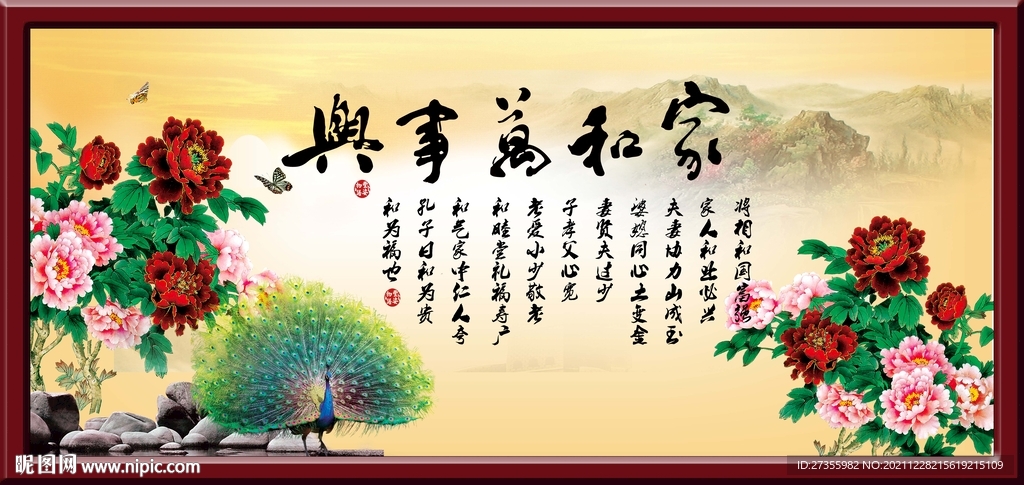 家和萬事興
将相和国富强
家人和业必兴
夫妻协力山成玉
婆媳同心土变金
妻贤夫过少
子孝父心宽
老爱小少敬老
和睦堂礼福寿广
和气家中仁人奇
孔子曰和为贵
和为福也
昵图网 www.nipic.com
ID:27355982 NO:20211228215619215109